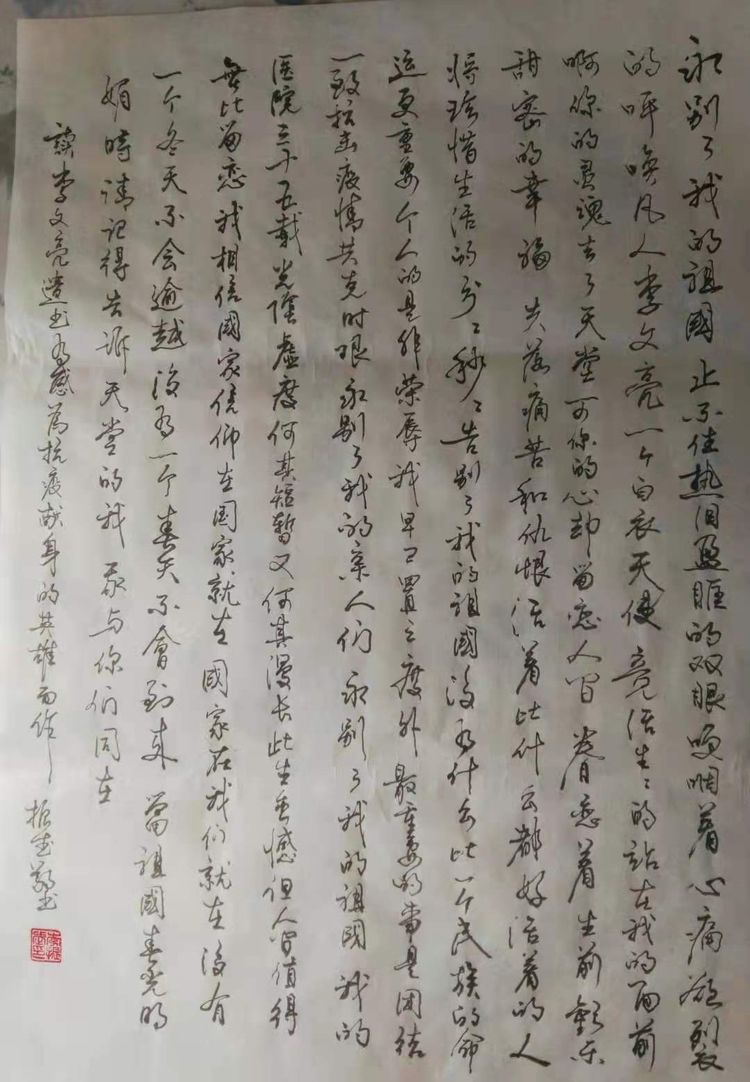 永别了我的祖國止不住热泪盈眶的双眼哽咽着心痛欲裂
的呼唤凡人李文亮一个白衣天使竟活生生的站在我的面前
啊你的灵魂去了天堂可你的心却留恋人间眷恋着生前歡乐
甜密的幸福失落痛苦和仇恨活着比什么都好活着的人
将珍惜生活的分分秒秒告别了我的祖國没有什么比一个民族的命
运更重要个人的是非荣辱我早已置之度外最重要的当是团结
一致抗击疫情共克时艰永别了我的亲人们永别了我的祖國我的
医院三十五载光阴虚度何其短暂又何其漫长此生無憾但人间值得
無比留恋我相信國家信仰在國家就在國家在我们就在没有
一个冬天不会逾越没有一个春天不會到来當祖國春光明
媚時请记得告诉天堂的我我与你们同在
读李文亮遗书有感為抗疫献身的英雄而作
振 书